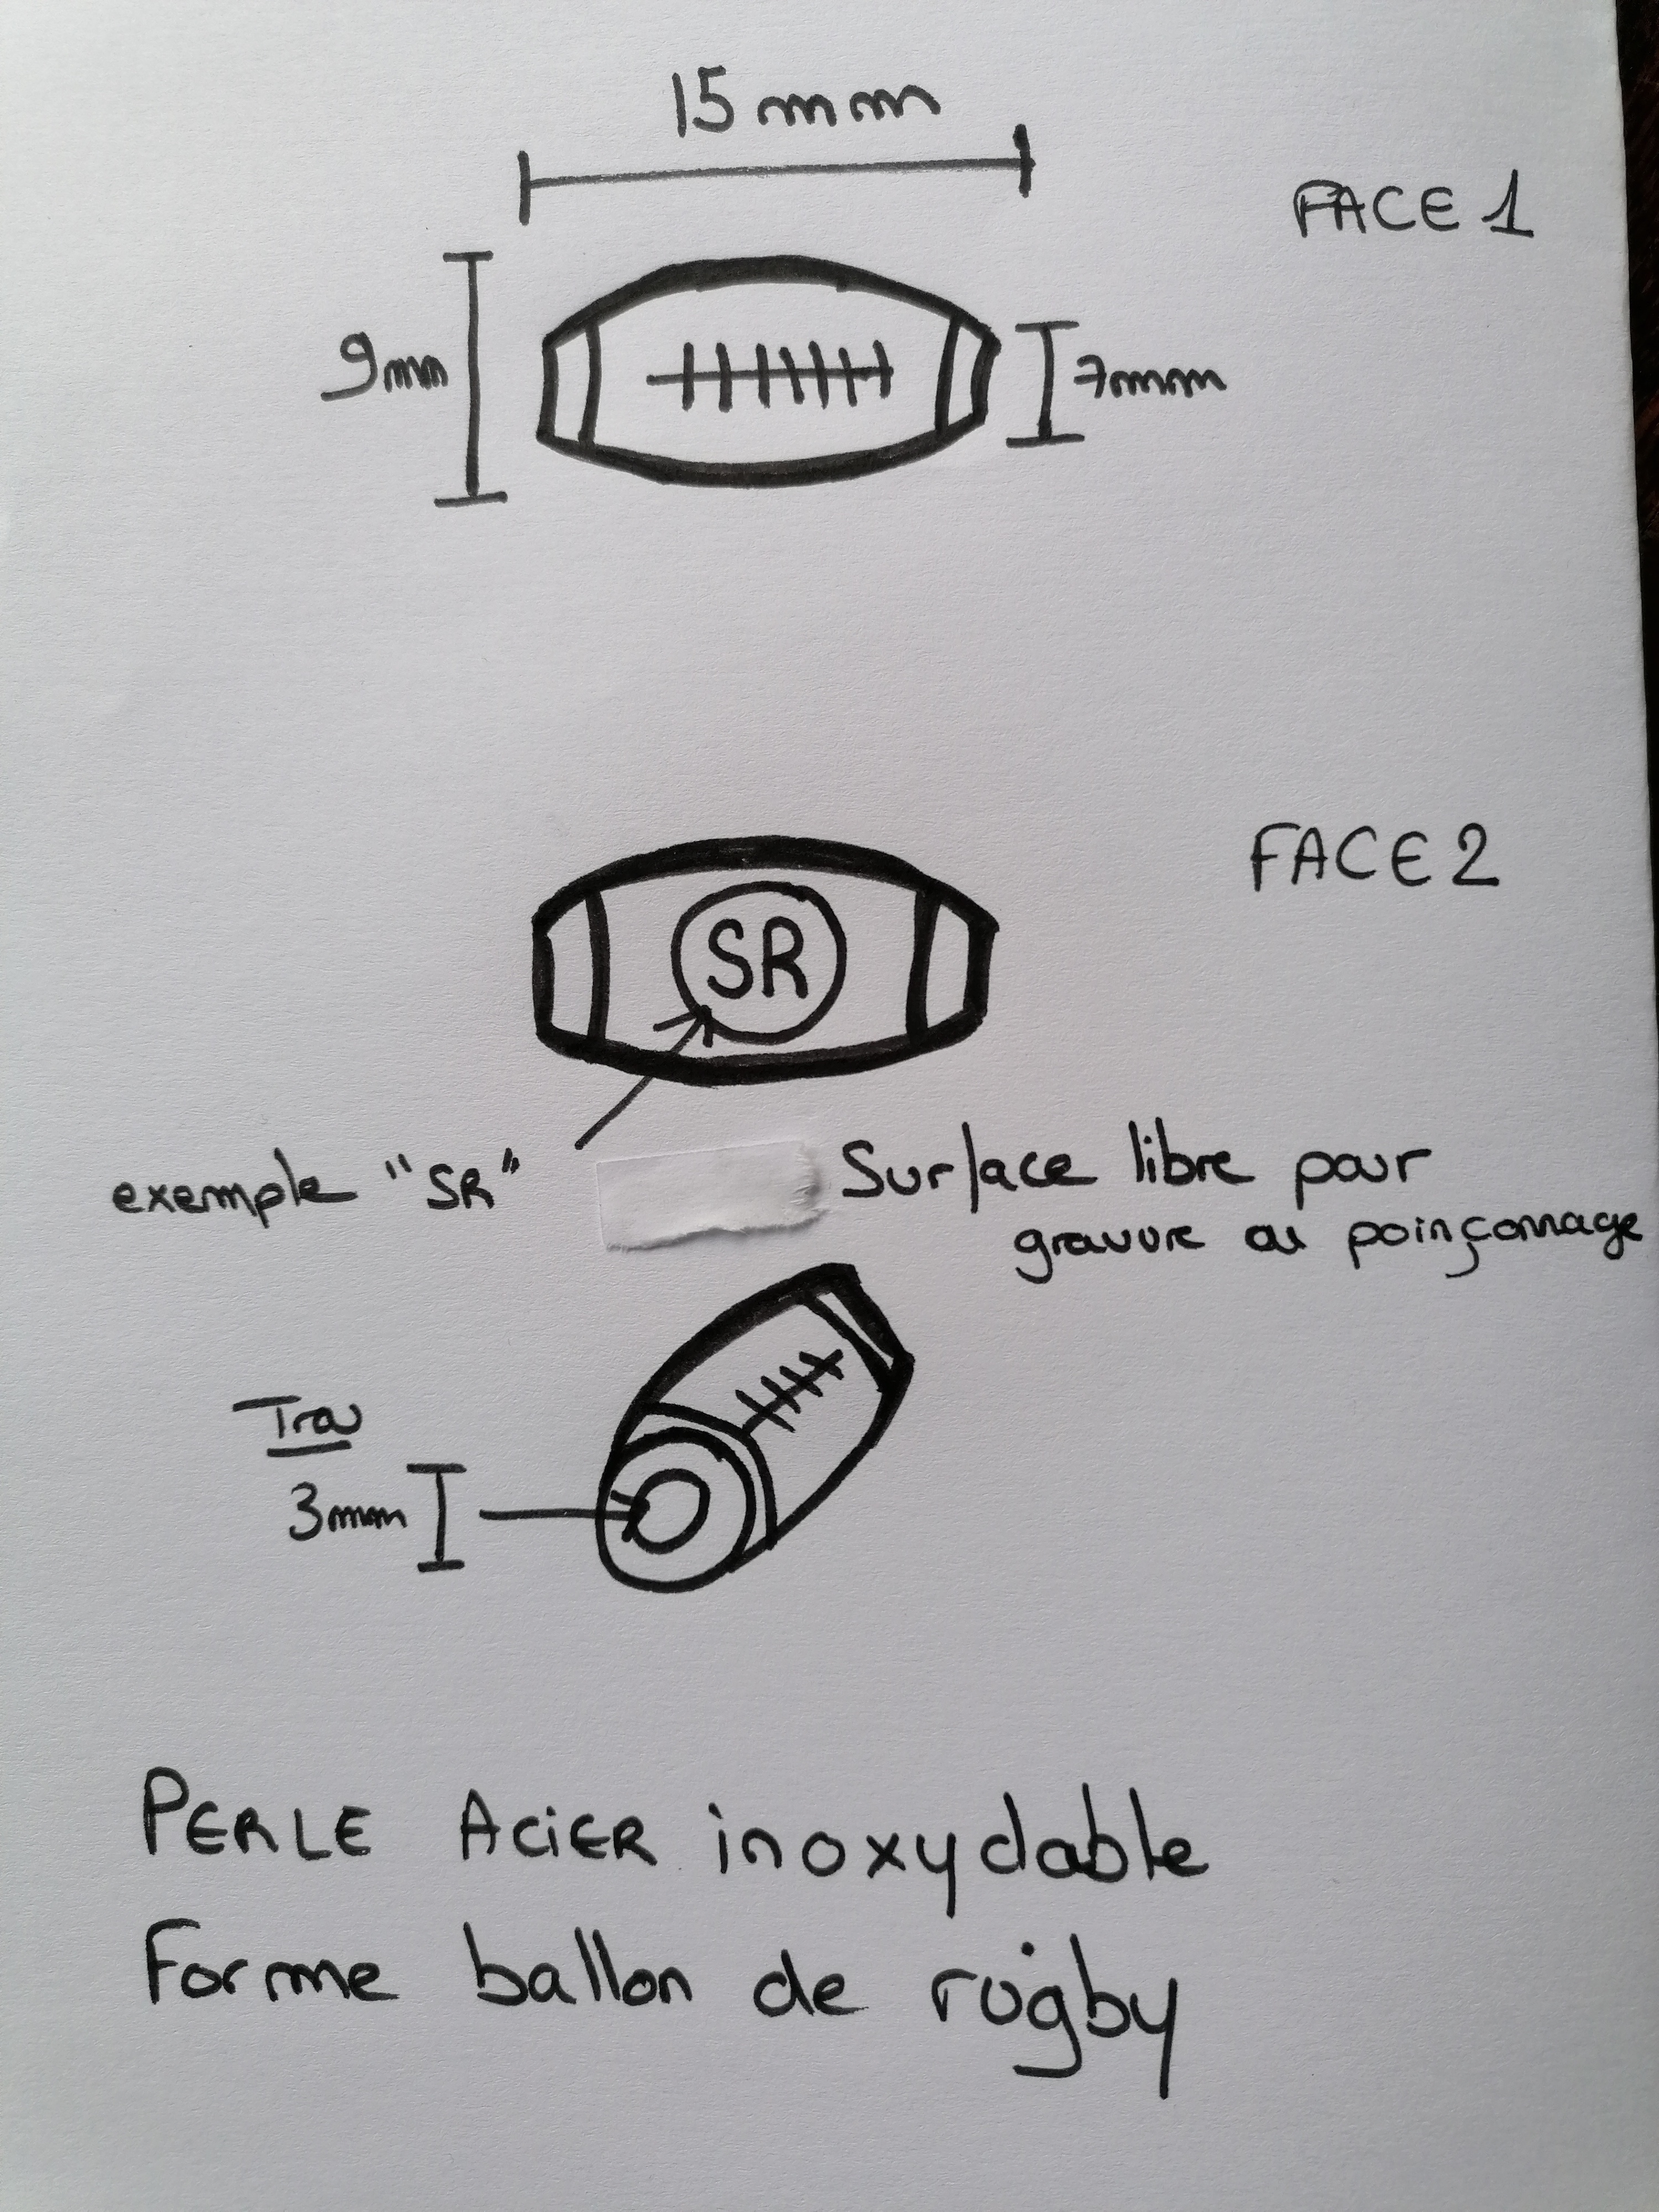 15mm
FACE 1
9mm
7mm
FACE 2
SR
exemple "SR"
Surface libre pour
gravure ou poinçonnage
Trou
3mm
PERLE ACiER inoxydable
Forme ballon de rugby